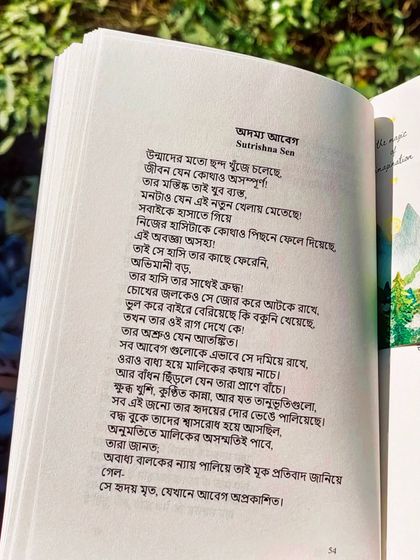 অদম্য আবেগ
Sutrishna Sen
উন্মাদের মতো ছন্দ খুঁজে চলেছে,
জীবন যেন কোথাও অসম্পূর্ণ!
তার মস্তিষ্ক তাই খুব ব্যস্ত,
মনটাও যেন এই নতুন খেলায় মেতেছে!
সবাইকে হাসাতে গিয়ে
নিজের হাসিটাকে কোথাও পিছনে ফেলে দিয়েছে,
এই অবজ্ঞা অসহ্য!
তাই সে হাসি তার কাছে ফেরেনি,
অভিমানী বড়,
তার হাসি তার সাথেই ক্রুদ্ধ!
চোখের জলকেও সে জোর করে আটকে রাখে,
ভুল করে বাইরে বেরিয়েছে কি বকুনি খেয়েছে,
তখন তার ওই রাগ দেখে কে!
তার অশ্রুও যেন আতঙ্কিত।
সব আবেগ গুলোকে এভাবে সে দমিয়ে রাখে,
ওরাও বাধ্য হয়ে মালিকের কথায় নাচে।
আর বাঁধন ছিঁড়লে যেন তারা প্রাণে বাঁচে।
ক্ষুব্ধ খুশি, কুণ্ঠিত কান্না, আর যত তানুভূতিগুলো,
সব এই জন্যে তার হৃদয়ের দোর ভেঙে পালিয়েছে।
বদ্ধ বুকে তাদের শ্বাসরোধ হয়ে আসছিল,
অনুমতিতে মালিকের অসম্মতিই পাবে,
তারা জানত;
অবাধ্য বালকের ন্যায় পালিয়ে তাই মূক প্রতিবাদ জানিয়ে
গেল-
সে হৃদয় মৃত, যেখানে আবেগ অপ্রকাশিত।
54
the magic
of